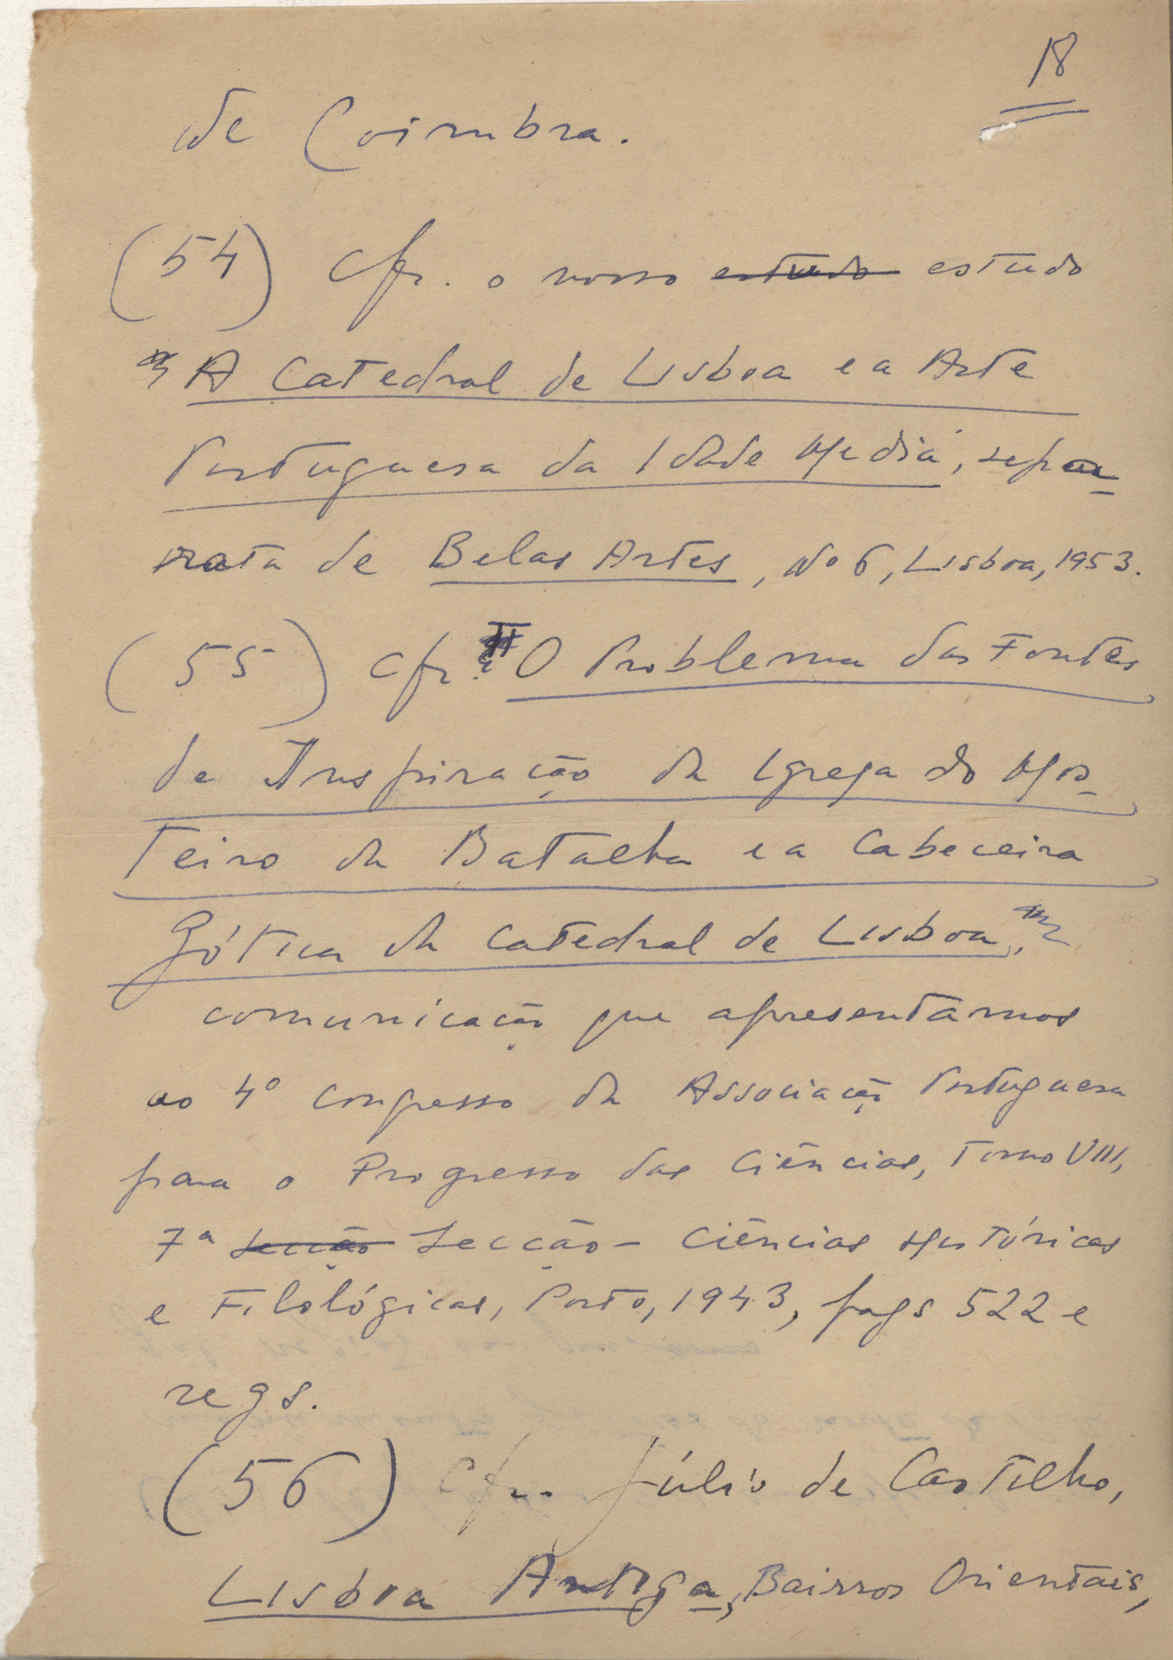 18
de Coimbra.
(54) Cfr. o nosso estudo estudo
A Catedral de Lisboa e a Arte
Portuguesa da Idade Média, sepa-
rata de Belas Artes, Nº 6, Lisboa, 1953.
(55) Cfr. O Problema das Fontes
de Inspiração da Igreja do Mos-
teiro da Batalha e a Cabeceira
Gótica da Catedral de Lisboa,
comunicação que apresentamos
ao 4º Congresso da Associação Portuguesa
para o Progresso das Ciências, Tomo VIII,
7ª secção Secção - Ciências Históricas
e Filológicas, Porto, 1943, pags 522 e
segs.
(56) Cfr. Júlio de Castilho,
Lisboa Antiga, Bairros Orientais,